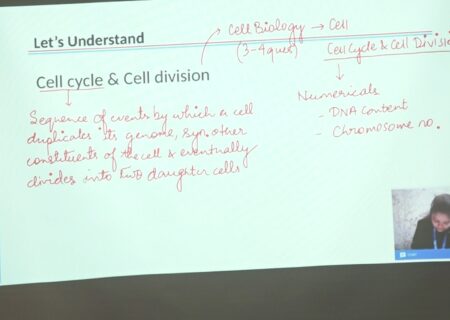 Let's Understand
Cell Biology → Cell
(3-4 ques)
Cell Cycle & Cell Divisi
Cell cycle & Cell division
Sequence of events by which a cell
duplicates its genome, syn. other
constituents of the cell & eventually
divides into two daughter cells
Numericals
- DNA content
- Chromosome no.